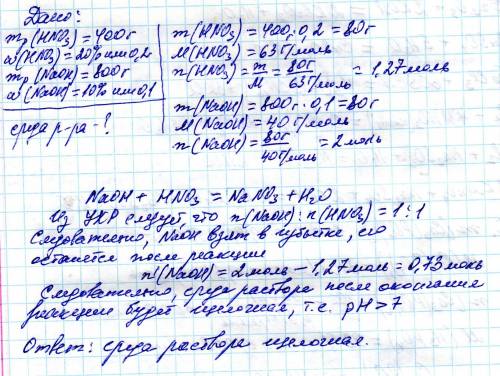 Дано:
mр(HNO₃)=400г
ω(HNO₃)=20% или 0,2
mр(NaOH)=800г
ω(NaOH)=10% или 0,1
среда р-ра-?
m(HNO₃)=400г·0,2=80г
M(HNO₃)=63г/моль
n(HNO₃)=m/M=80г/63г/моль=1,27моль
m(NaOH)=800г·0,1=80г
M(NaOH)=40г/моль
n(NaOH)=80г/40г/моль=2моль
NaOH + HNO₃ = NaNO₃ + H₂O
Из УХР следует что n(NaOH):n(HNO₃)=1:1
Следовательно, NaOH взят в избытке, его
останется после реакции
n'(NaOH)=2моль-1,27моль=0,73моль
Следовательно, среда раствора после окончания
реакции будет щелочная, т.е. pH>7
Ответ: среда раствора щелочная.